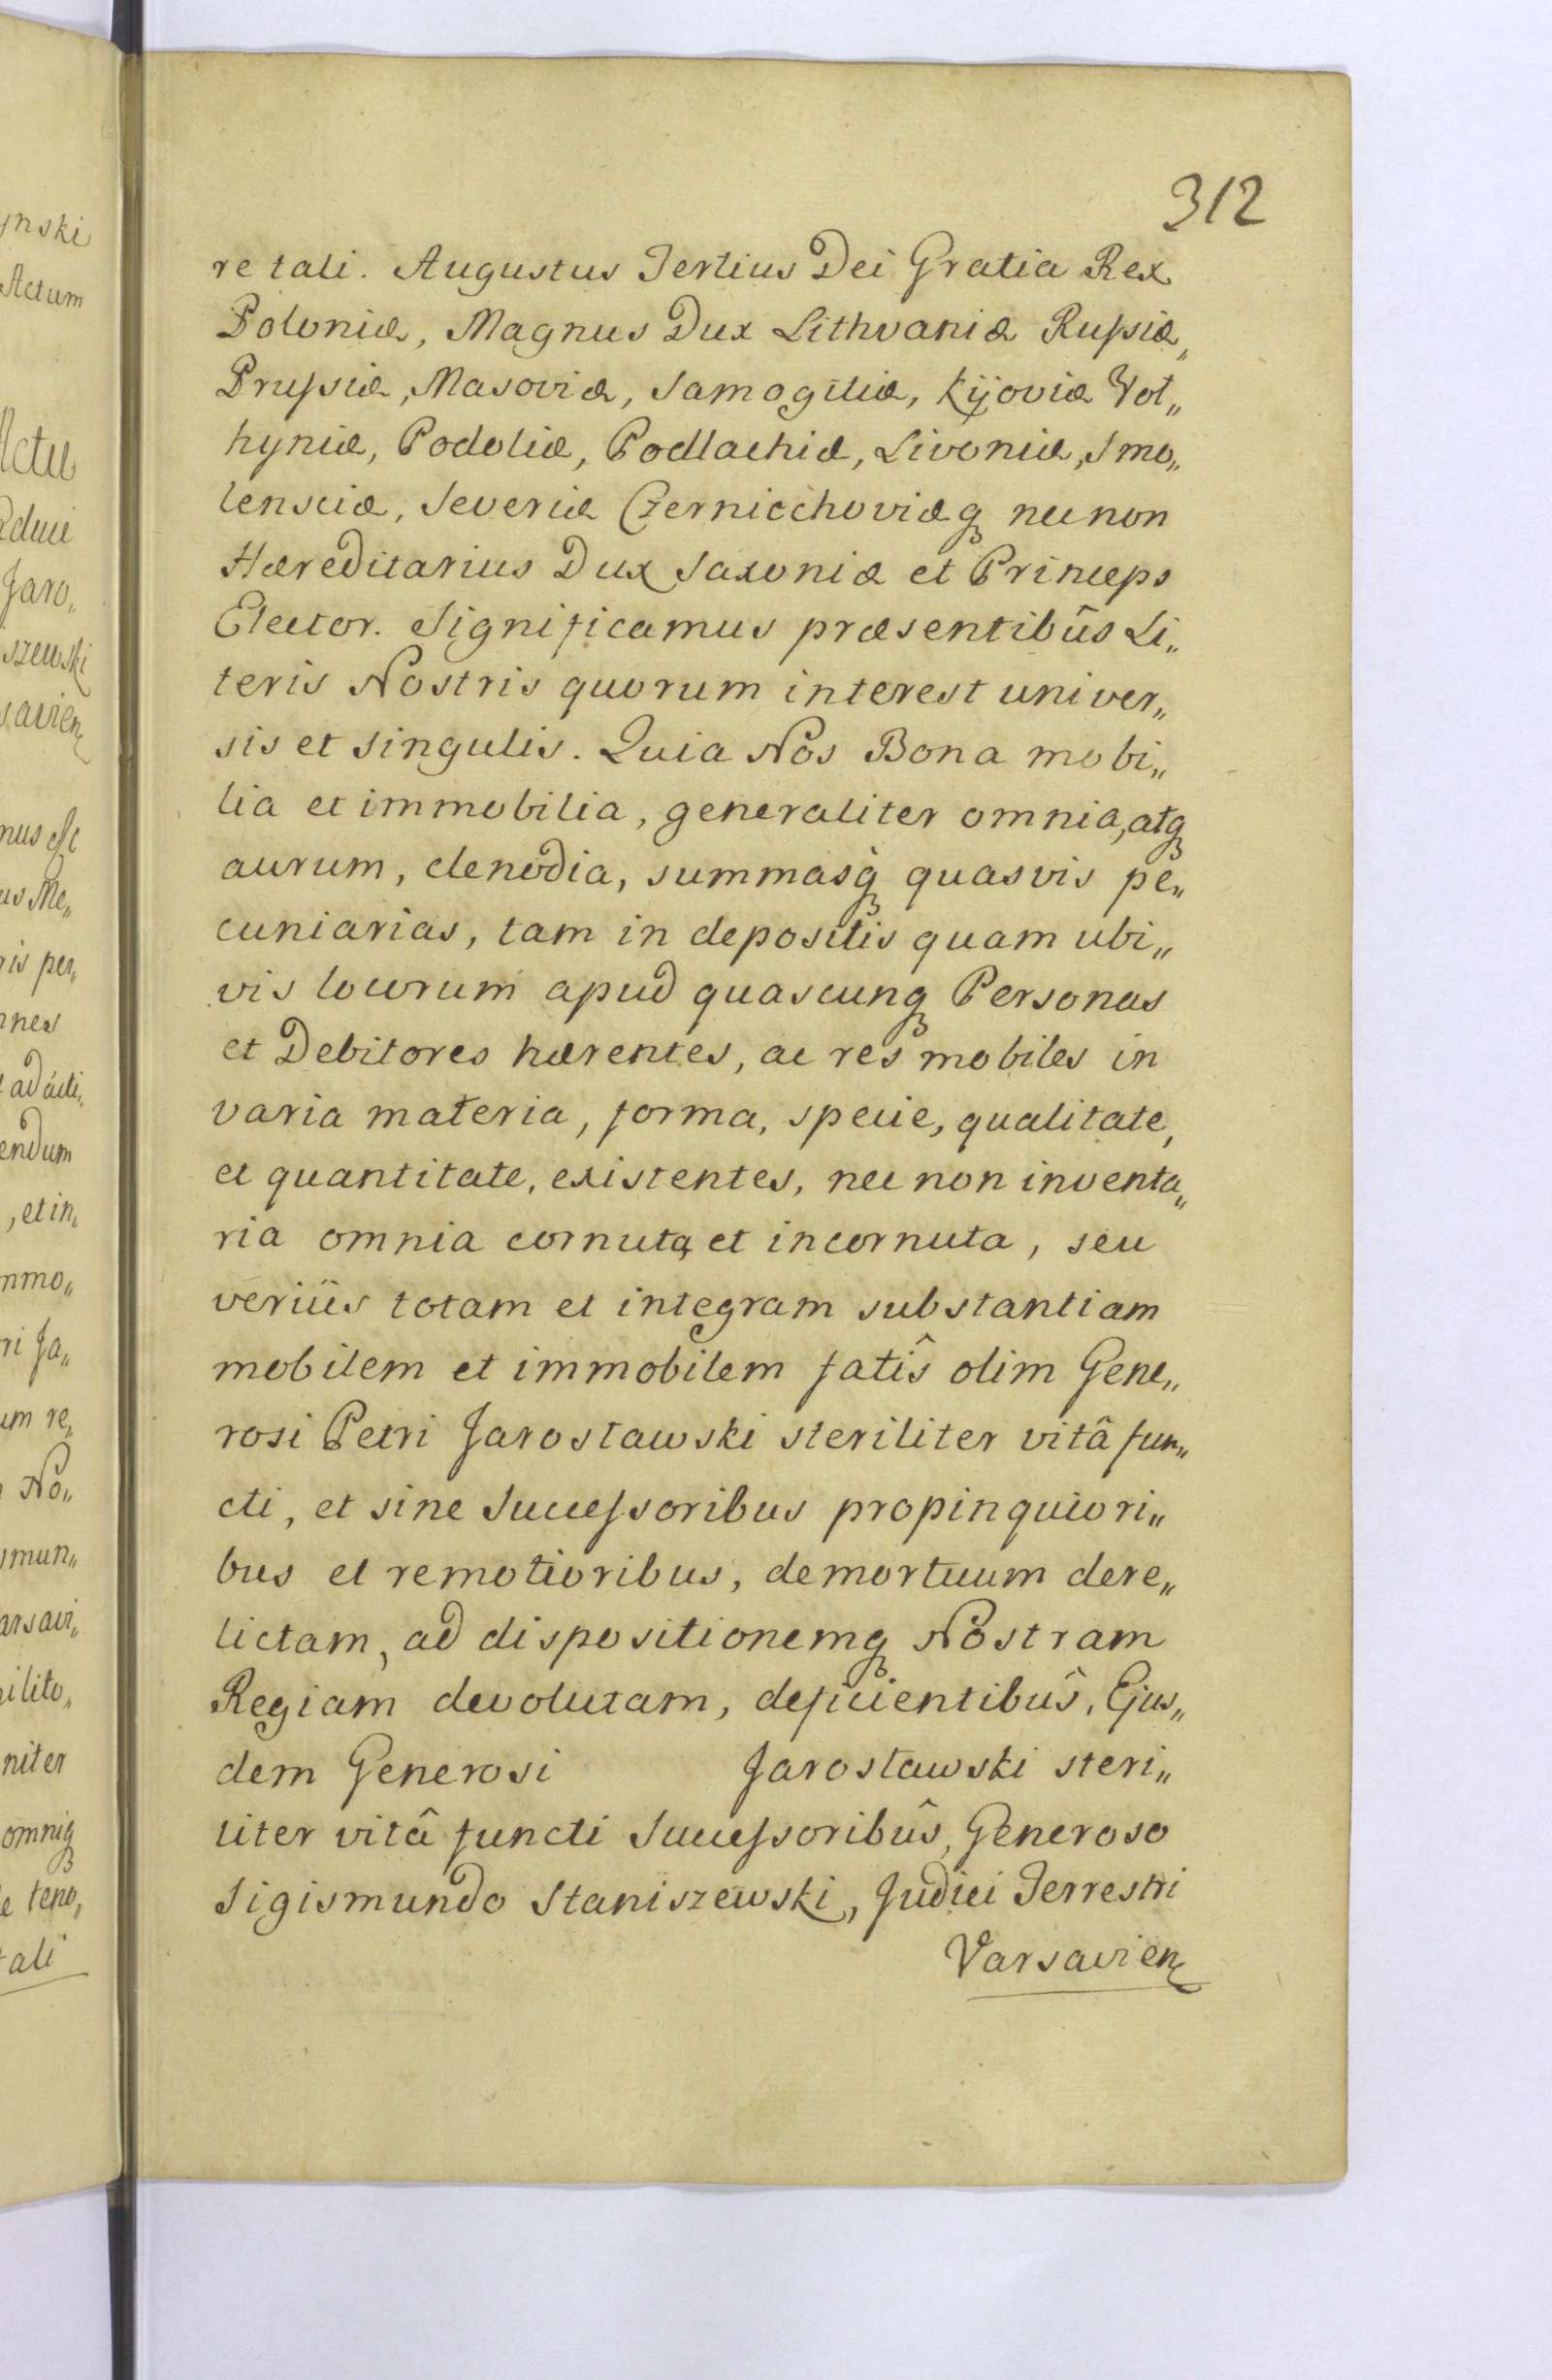 312
re tali. Augustus Tertius Dei Gratia Rex
Poloniæ, Magnus Dux Lithvaniæ Russiæ,
Prussiæ, Masoviæ, Samogitiæ, Kijoviæ Vol„
hyniæ, Podoliæ, Podlachiæ, Livoniæ, Smo„
lensciæ, Severiæ Czernicchoviæq nec non
Hæreditarius Dux Saxoniæ et Princeps
Elector. Significamus præsentibûs Li„
teris Nostris quorum interest univer„
sis et singulis. Quia Nos Bona mobi„
lia et immobilia, generaliter omnia, atq
aurum, clenodia, summasq quasvis pe„
cuniarias, tam in depositis quam ubi„
vis locorum apud quascunq Personas
et Debitores hærentes, ac res mobiles in
varia materia, forma, specie, qualitate,
et quantitate, existentes, nec non inventa„
ria omnia cornuta et incornuta, seu
veriùs totam et integram substantiam
mobilem et immobilem fatîs olim Gene„
rosi Petri Jarosławski steriliter vitâ fun„
cti, et sine Successoribus propinquiori„
bus et remotioribus, demortuum dere„
lictam, ad dispositionemq Nostram
Regiam devolutam, deficientibûs, Ejus„
dem Generosi Jarosławski steri„
liter vitâ functi Successoribûs, Generoso
Sigismundo Staniszewski, Judici Terrestri
Varsavien
ynski
Actum
Actu
Jaro„
szewski
savien
nus est
us Me„
ris per„
nnes
endum
, et in„
mmo„
ri Ja„
um re„
No„
mun„
arsavi„
ilito„
niter
omniq
e teno„
tali